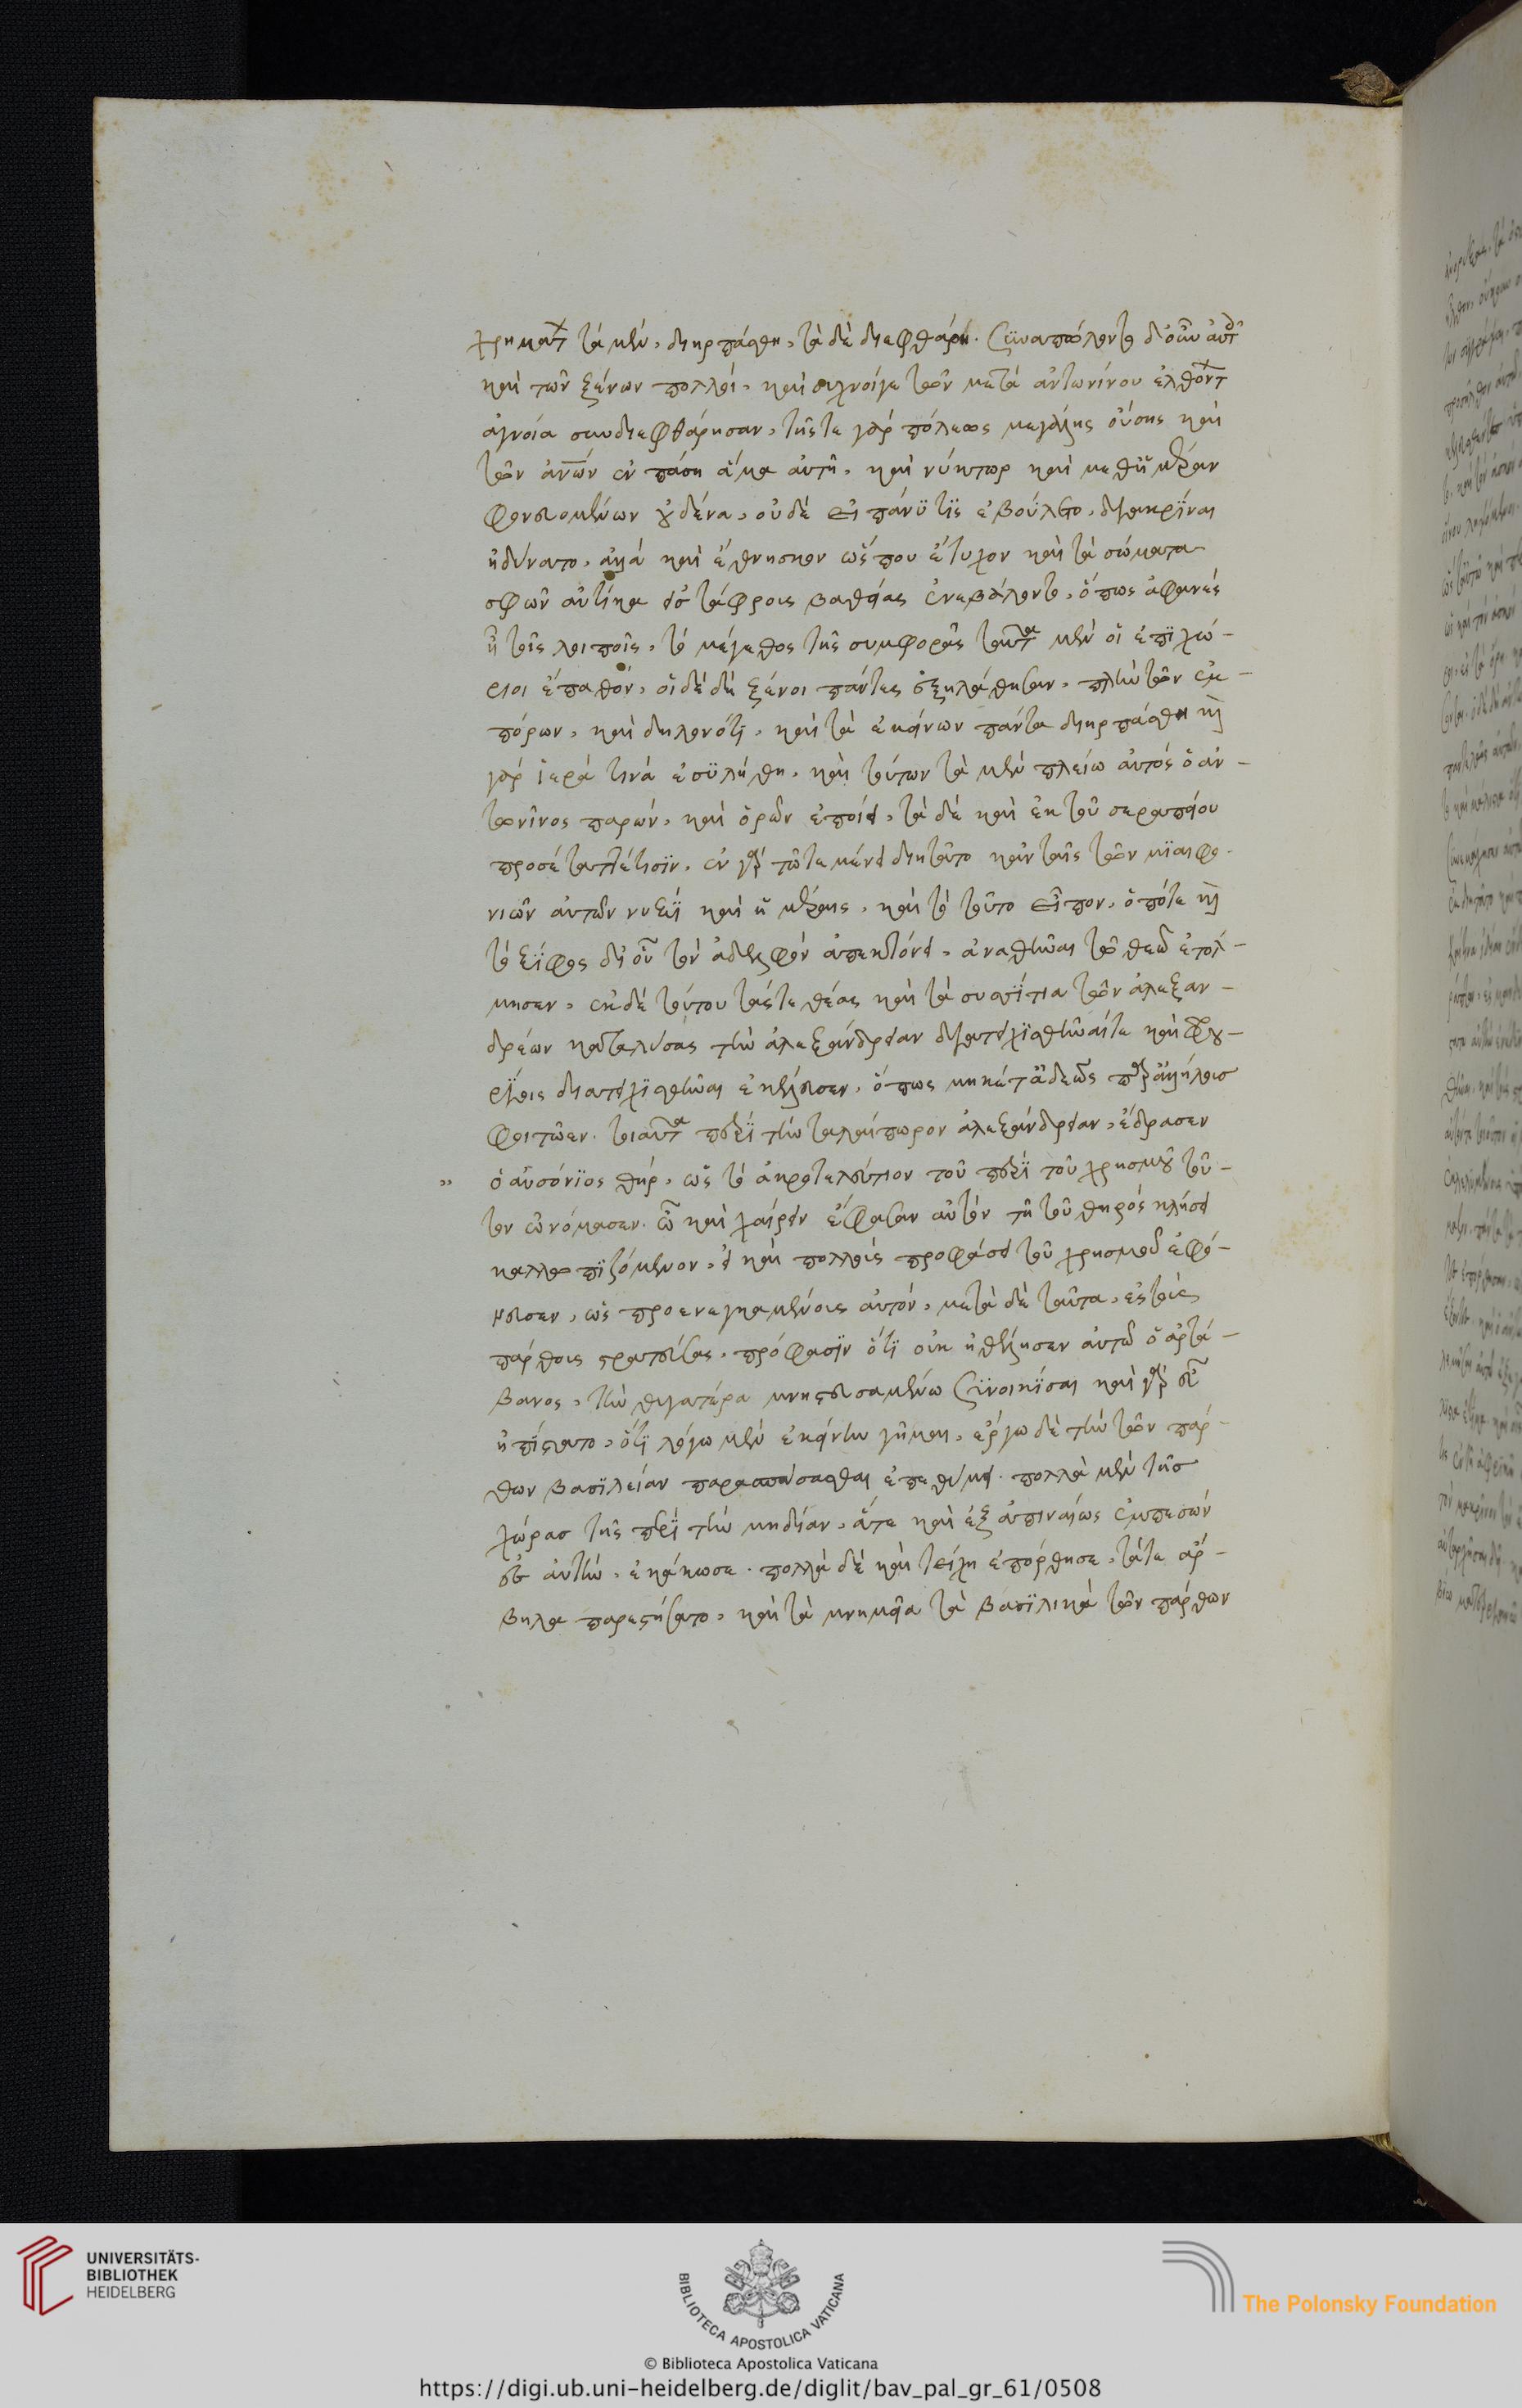 χρήματα τὰ μὲν, διηρπάσθη, τὰ δὲ διεφθάρη. συναπώλοντο δ᾽ οὖν αὐτοῖς
καὶ τῶν ξένων πολλοὶ, καὶ συχνοί γε τῶν μετὰ ἀντωνίνου ἐλθόντων
ἀγνοία συνδιεφθάρησαν, τῆς τε γὰρ πόλεως μεγάλης οὔσης καὶ
τῶν ἀνων ἐν πάση ἅμα αὐτῆ, καὶ νύκτωρ καὶ μεθ᾽ ἡμέραν
φονευομένων οὐδένα, οὐδὲ εἰ πάνυ τὶς ἐβούλετο, διακρῖναι
ἠδύνατο, ἀλλὰ καὶ ἔθνησκον ὥς που ἔτυχον καὶ τὰ σώματα
σφῶν αὐτίκα εἰς τάφρους βαθείας ἐνεβάλοντο, ὅπως ἀφανὲς
ᾖ τοῖς λοιποῖς, τὸ μέγεθος τῆς συμφορᾶς ταῦτα μὲν οἱ ἐπιχώ-
ριοι ἔπαθον, οἱ δὲ δὴ ξένοι πάντες ἐξηλάθησαν, πλὴν τῶν ἐμ-
πόρων, καὶ δηλονότι, καὶ τὰ ἐκείνων πάντα διηρπάσθη καὶ
γὰρ ἱερά τινα ἐσυλήθη, καὶ τούτων τὰ μὲν πλείω αὐτὸς ὁ ἀν-
τωνῖνος παρὼν, καὶ ὁρῶν ἐποίει, τὰ δὲ καὶ ἐκ τοῦ σεραπείου
προσέταττέ τισιν, ἐν γὰρ τῷ τεμένει διητᾶτο κἀν ταῖς τῶν μιαιφο-
νιῶν αὐτῶν νυξὶ καὶ ἡμέραις, καὶ τί τοῦτο εἶπον, ὁπότε καὶ
τὸ ξίφος δι᾽ οὗ τὸν ἀδελφὸν ἀπεκτόνει, ἀναθεῖναι τῷ θεῷ ἐτόλ-
μησεν, ἐκ δὲ τούτου τάς τε θέας καὶ τὰ συσσίτια τῶν ἀλεξαν-
δρέων καταλύσας τὴν ἀλεξάνδρειαν διατειχισθῆναί τε καὶ φρου-
ρίοις διατειχισθῆναι ἐκέλευσεν, ὅπως μηκέτ᾽ ἀδεῶς παρ᾽ ἀλλήλους
φοιτῷεν. τοιαῦτα περὶ τὴν ταλαίπωρον ἀλεξάνδρειαν, ἔδρασεν
” ὁ αὐσόνιος θὴρ, ὡς τὸ ἀκροτελεύτιον τοῦ περὶ τοῦ χρησμοῦ τοῦ-
τον ὠνόμασεν. ᾧ καὶ χαίρειν ἔφασαν αὐτὸν τῇ τοῦ θηρὸς κλήσει
καλλωπιζόμενον, εἰ καὶ πολλοὺς προφάσει τοῦ χρησμοῦ ἐφό-
νευσεν, ὡς προενεγκαμένους αὐτόν, μετὰ δὲ ταῦτα, ἐς τοὺς
πάρθους στρατεύσας, πρόφασιν ὅτι οὐκ ἠθέλησεν αὐτῷ ὁ ἀρτά-
βανος, τὴν θυγατέρα μνηστευσαμένῳ συνοικίσαι καὶ γὰρ εὖ
ἠπίστατο, ὅτι λόγῳ μὲν ἐκείνην γῆμαι, ἔργῳ δὲ τὴν τῶν πάρ-
θων βασιλείαν παρασπάσασθαι ἐπεθύμει. πολλὰ μὲν τῆς
χώρας τῆς περὶ τὴν μηδίαν, ἅτε καὶ ἐξ ἀπιναίως ἐμπεσὼν
ἐς αὐτὴν, ἐκάκωσε. πολλὰ δὲ καὶ τείχη ἐπόρθησε, τά τε ἄρ-
βηλα παρεστήσατο, καὶ τὰ μνημεῖα τὰ βασιλικὰ τῶν πάρθων
UNIVERSITÄTS-
BIBLIOTHEK
HEIDELBERG
BIBLIOTECA APOSTOLICA VATICANA
The Polonsky Foundation
© Biblioteca Apostolica Vaticana
https://digi.ub.uni-heidelberg.de/diglit/bav_pal_gr_61/0508